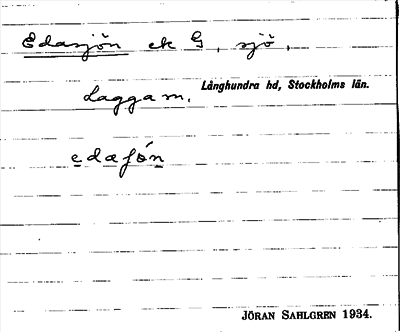 Edasjön ek G, sjö.
Långhundra hd, Stockholms län.
Laggam.
edaʃón
JÖRAN SAHLGREN 1934.